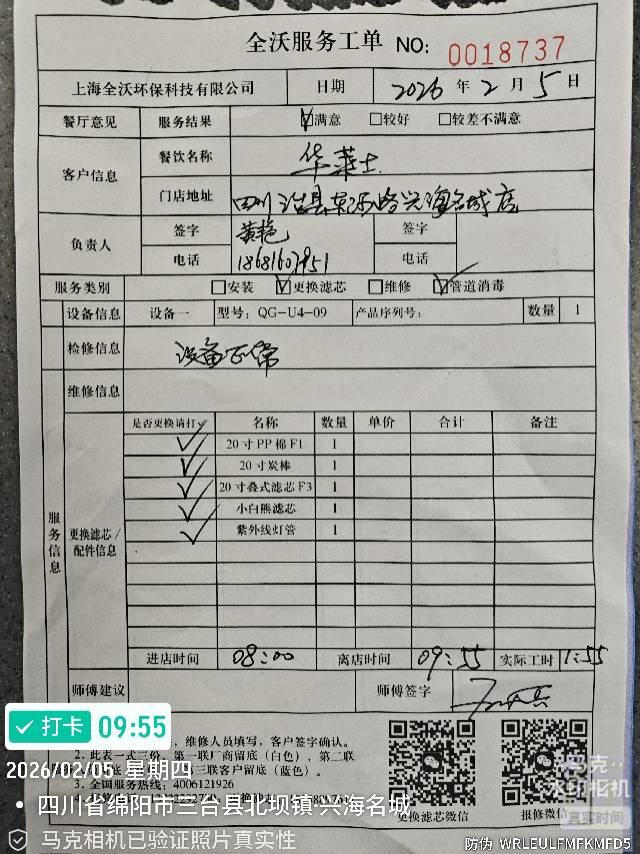 全沃服务工单 NO: 0018737
上海全沃环保科技有限公司 日期 2026 年 2 月 5 日
餐厅意见 服务结果 ☑满意 □较好 □较差不满意
客户信息 餐饮名称 华莱士
门店地址 四川 县 路兴海名城店
负责人 签字 黄艳 签字
电话 18681607951 电话
服务类别 □安装 ☑更换滤芯 □维修 ☑管道消毒
设备信息 设备一 型号: QG-U4-09 产品序列号: 数量 1
检修信息 设备正常
维修信息
服务信息
更换滤芯/配件信息
是否更换请打✓ 名称 数量 单价 合计 备注
✓ 20寸PP棉F1 1
✓ 20寸炭棒 1
✓ 20寸叠式滤芯F3 1
✓ 小白熊滤芯 1
✓ 紫外线灯管 1
进店时间 08:00 离店时间 09:55 实际工时 1:55
师傅建议 师傅签字
维修人员填写,客户签字确认。
2. 此表一式三份,第一联厂商留底(白色),第二联
第三联客户留底(蓝色)。
3. 全国服务热线: 4006121926
更换滤芯微信 报修微信
✓ 打卡 09:55
2026/02/05 星期四
四川省绵阳市三台县北坝镇·兴海名城
马克相机已验证照片真实性
马克
水印相机
真实时间
防伪 WRLEULFMFKMFD5